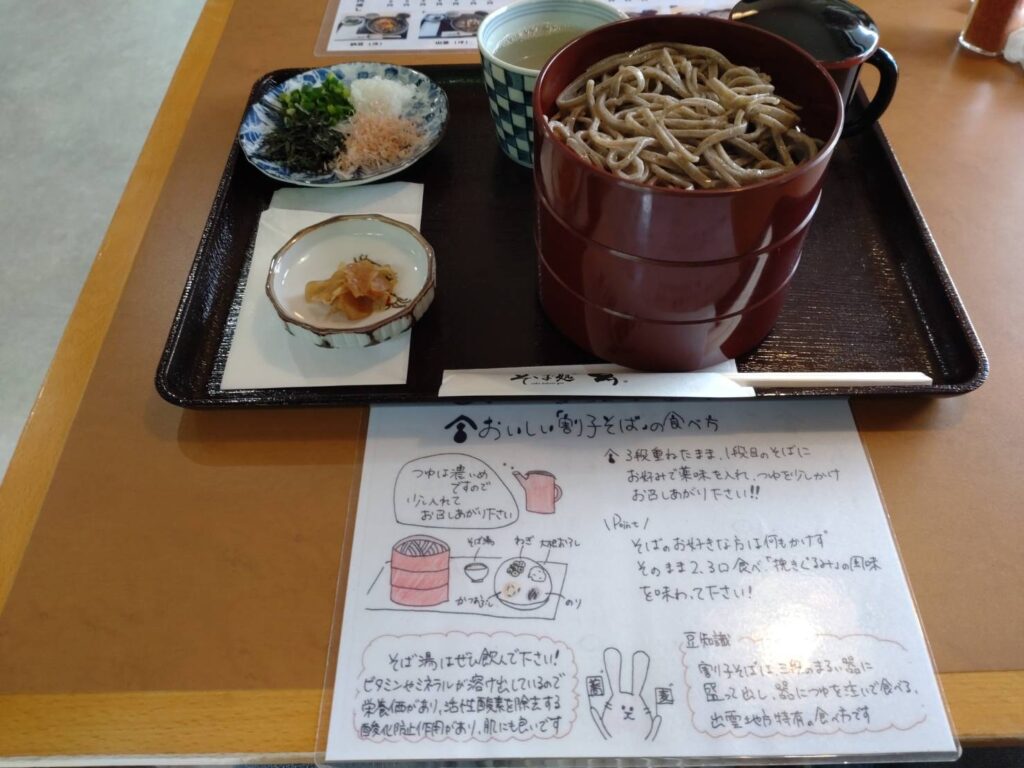 そば処
おいしい「割子そば」の食べ方
つゆは濃いめ
ですので
少し入れて
お召しあがり下さい
3段重ねたまま、1段目のそばに
お好みで薬味を入れ、つゆを少しかけ
お召しあがり下さい!!
\Point/
そばのお好きな方は何もかけず
そのまま2.3口食べ「挽きぐるみ」の風味
を味わって下さい!
そば湯
ねぎ
大根おろし
かつおぶし
のり
そば湯はぜひ飲んで下さい!
ビタミンやミネラルが溶け出しているので
栄養価があり、活性酸素を除去する
酸化防止作用があり、肌にも良いです
豆知識
割子そばは三段のまるい器に
盛って出し、器につゆを注いで食べる、
出雲地方特有の食べ方です